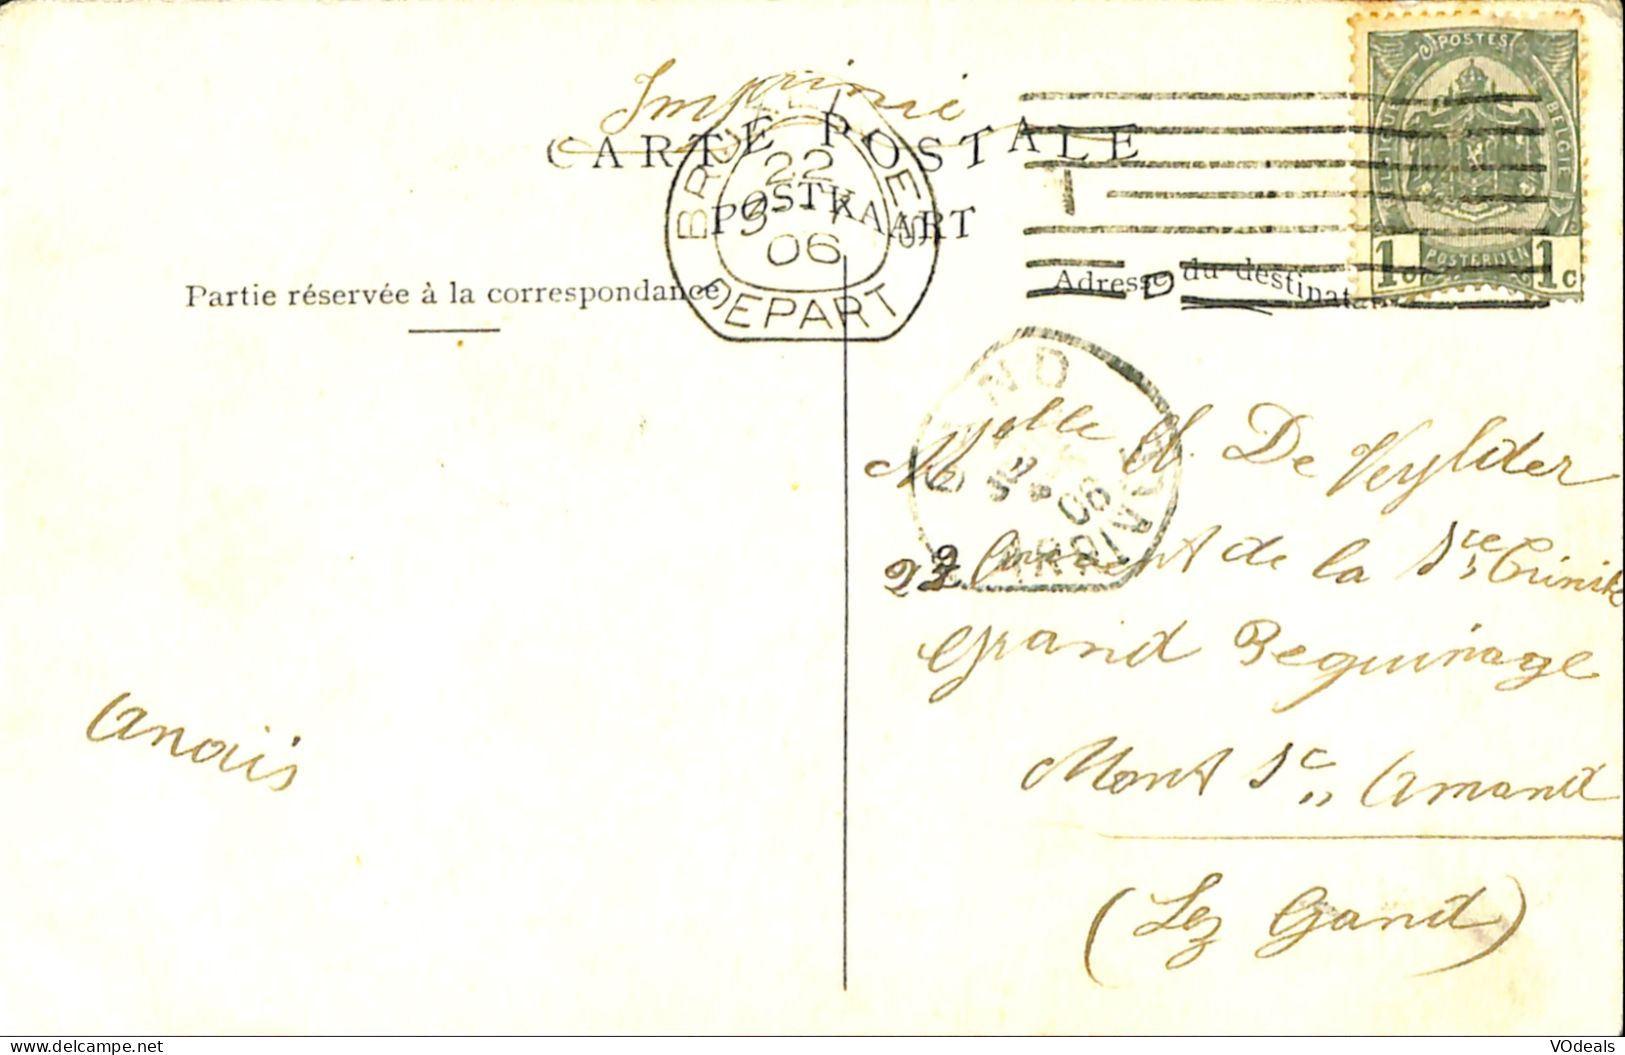 Imprimé
CARTE POSTALE
POSTKAART
BRUXELLES
22
06
DEPART
POSTES
BELGIQUE
BELGIE
POSTERIJEN
1c 1c
T
D
Partie réservée à la correspondance
Adresse du destinatai
GAND
06
ARRIV
Melle A. De Vylder
22 Couvent de la Ste Trinité
Grand Beguinage
Mont St Amand
(Lez Gand)
Anaïs
VOdeals
https://www.delcampe.net